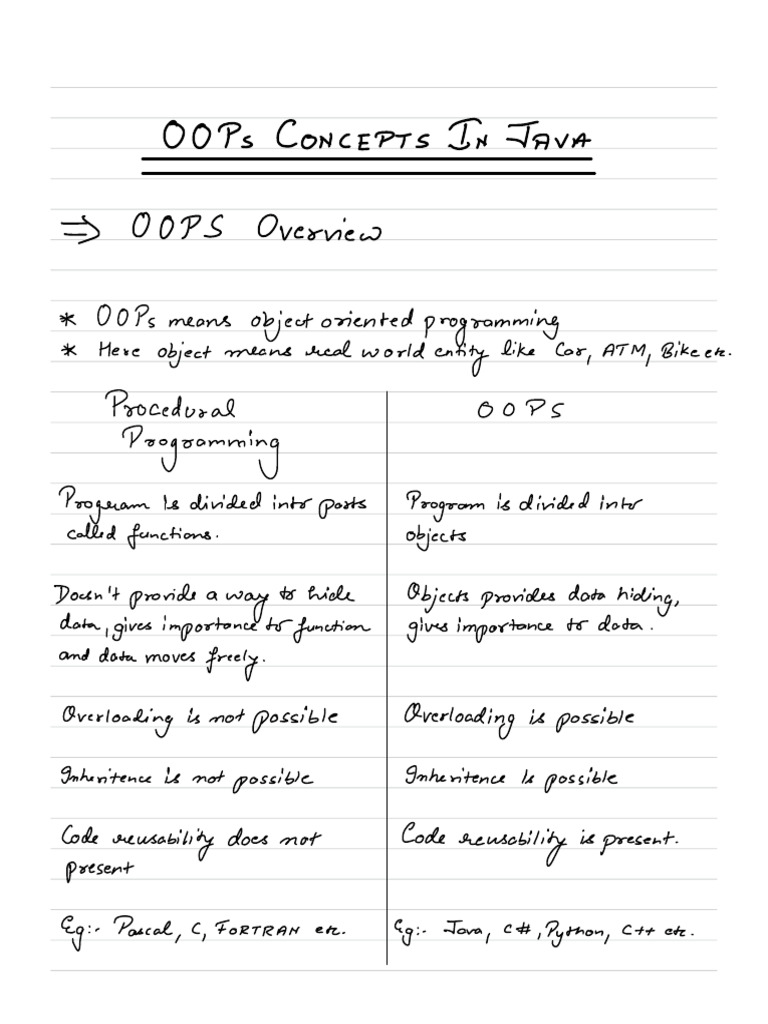 OOPs CONCEPTS IN JAVA
⇒ OOPS Overview
* OOPs means object oriented programming
* Here object means real world entity like Car, ATM, Bike etc.
Procedural
Programming
Program is divided into parts
called functions.
Doesn't provide a way to hide
data, gives importance to function
and data moves freely.
Overloading is not possible
Inheritence is not possible
Code reusability does not
present
Eg:- Pascal, C, FORTRAN etc.
OOPS
Program is divided into
objects
Objects provides data hiding,
gives importance to data.
Overloading is possible
Inheritence is possible
Code reusability is present.
Eg:- Java, C#, Python, C++ etc.